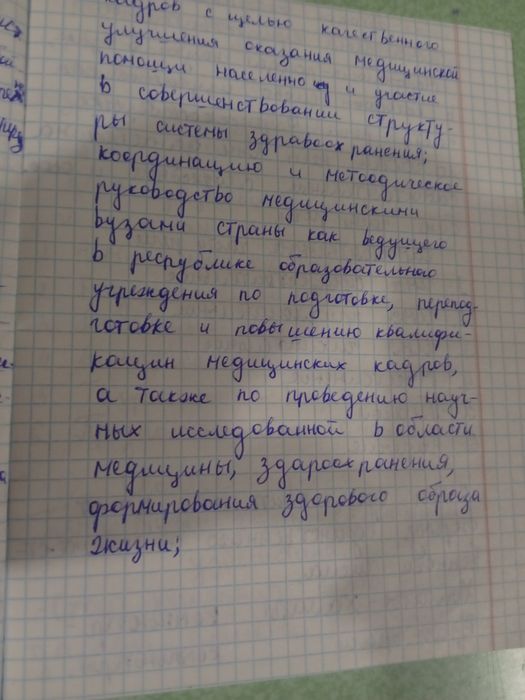 кадров с целью качественного
улучшения оказания медицинской
помощи населению и участие
в совершенствовании структу-
ры системы здравоохранения;
координацию и методическое
руководство медицинскими
вузами страны как ведущего
в республике образовательного
учреждения по подготовке, перепод-
готовке и повышению квалифи-
кации медицинских кадров,
а также по проведению науч-
ных исследованной в области
медицины, здароохранения,
формирования здорового образа
жизни;